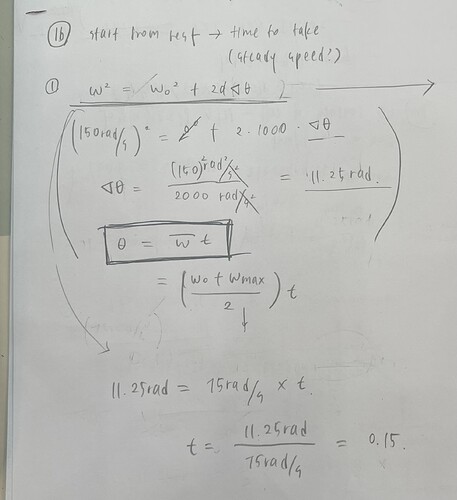 1b start from rest → time to take
(steady speed?)
① ω² = ω₀² + 2α△θ
(150rad/s)² = 0² + 2·1000·△θ
△θ = (150)²rad²/s² / 2000 rad/s² = 11.25rad.
θ = ω̅ t
= (ω₀ + ωmax / 2) t
11.25rad = 75rad/s × t.
t = 11.25rad / 75rad/s = 0.15.